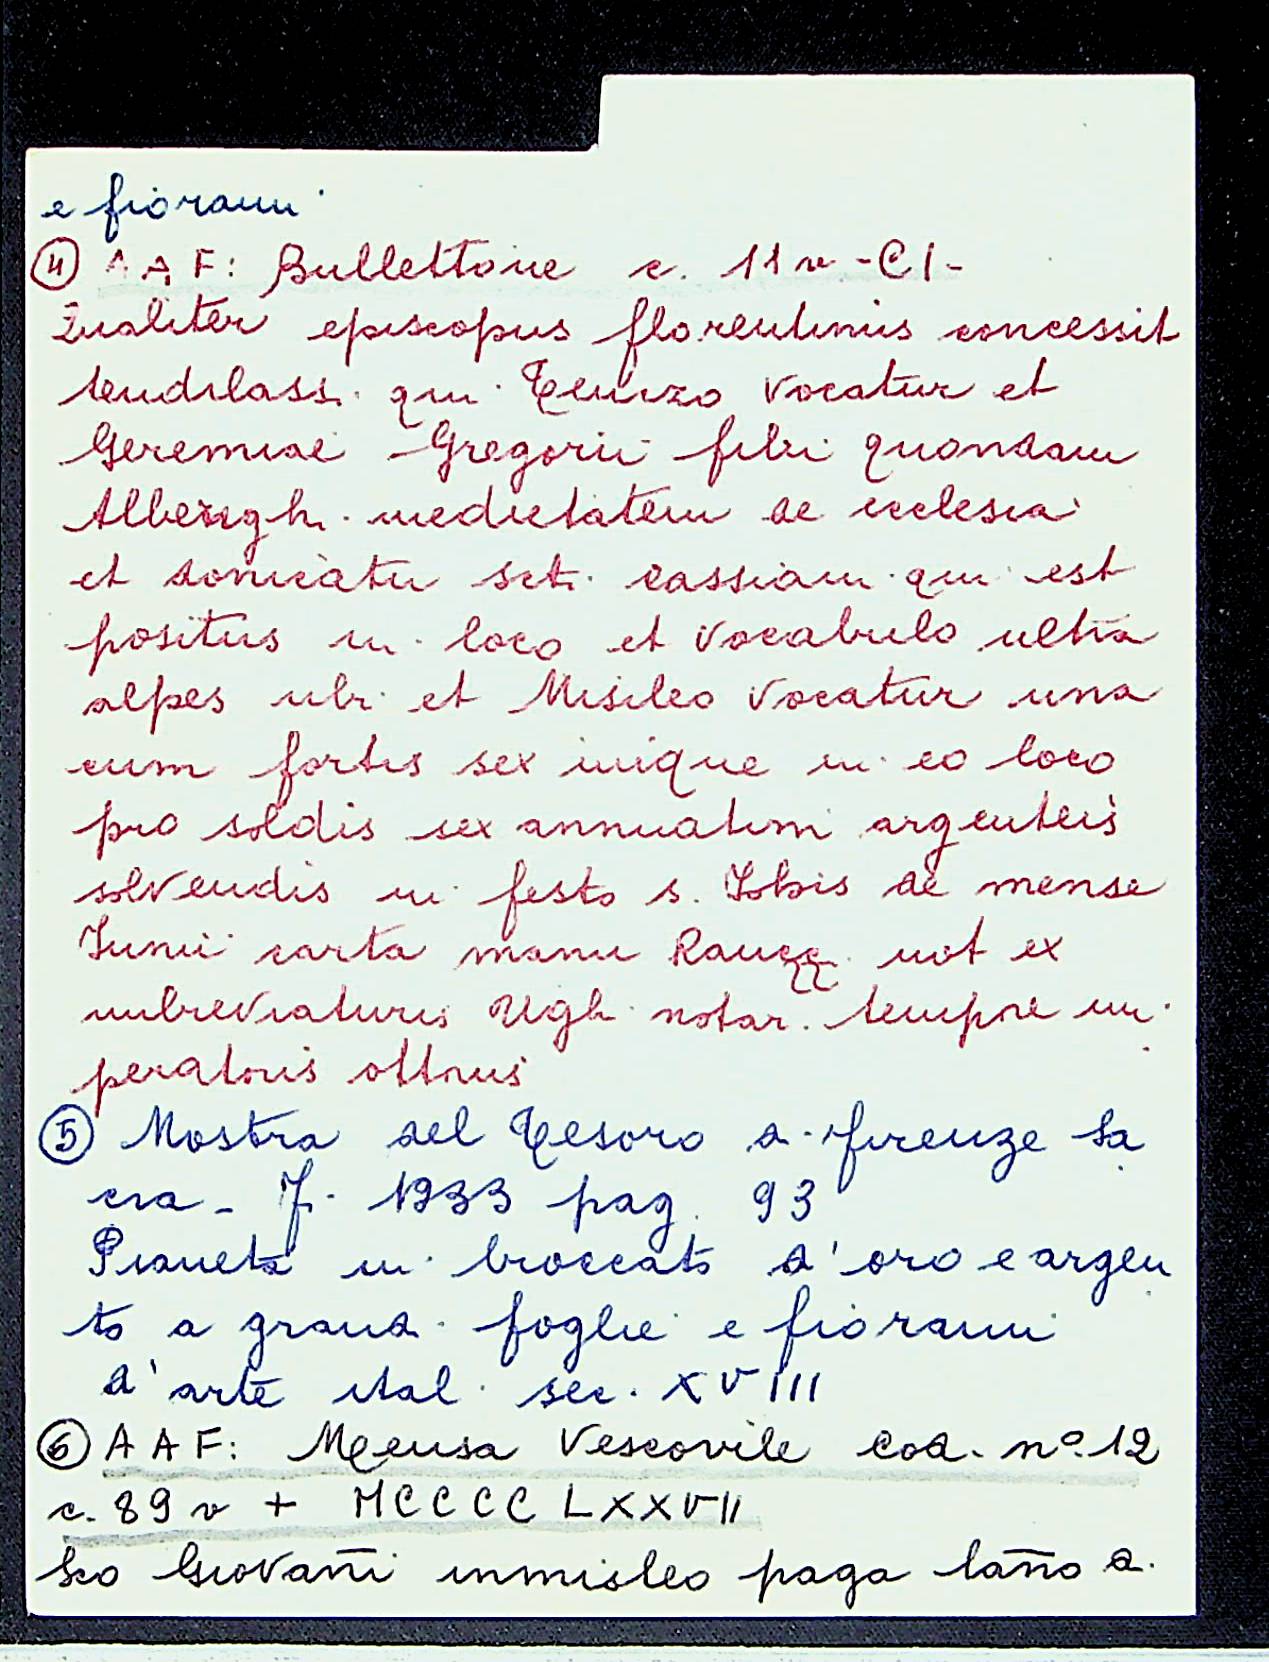 e fiorami
④ A A F: Bullettone c. 11 v - C I -
Qualiter episcopus florentinus concessit
teudilass. qui Teuizo vocatur et
Geremiae Gregorii filii quondam
Alberigh. medietatem de ecclesia
et donicatu sct. cassiam qui est
positus in loco et vocabulo ultra
alpes ubi et Misileo vocatur una
cum sex in eo loco
pro soldis sex annuatim argenteis
solvendis in festo s. Iohis de mense
Iunii carta manu not ex
imbreviaturis Ugh. notar. tempore im
peratoris ottonis
⑤ Mostra del Tesoro di firenze sa
cra - F. 1933 pag. 93
Pianeta in broccato d'oro e argen
to a grandi foglie e fiorami
d'arte ital. sec. XVIII
⑥ A A F: Mensa Vescovile cod. nº 12
c. 89 v + MCCCCLXXVII
Sco Giovañi inmisleo paga lan̄o a.